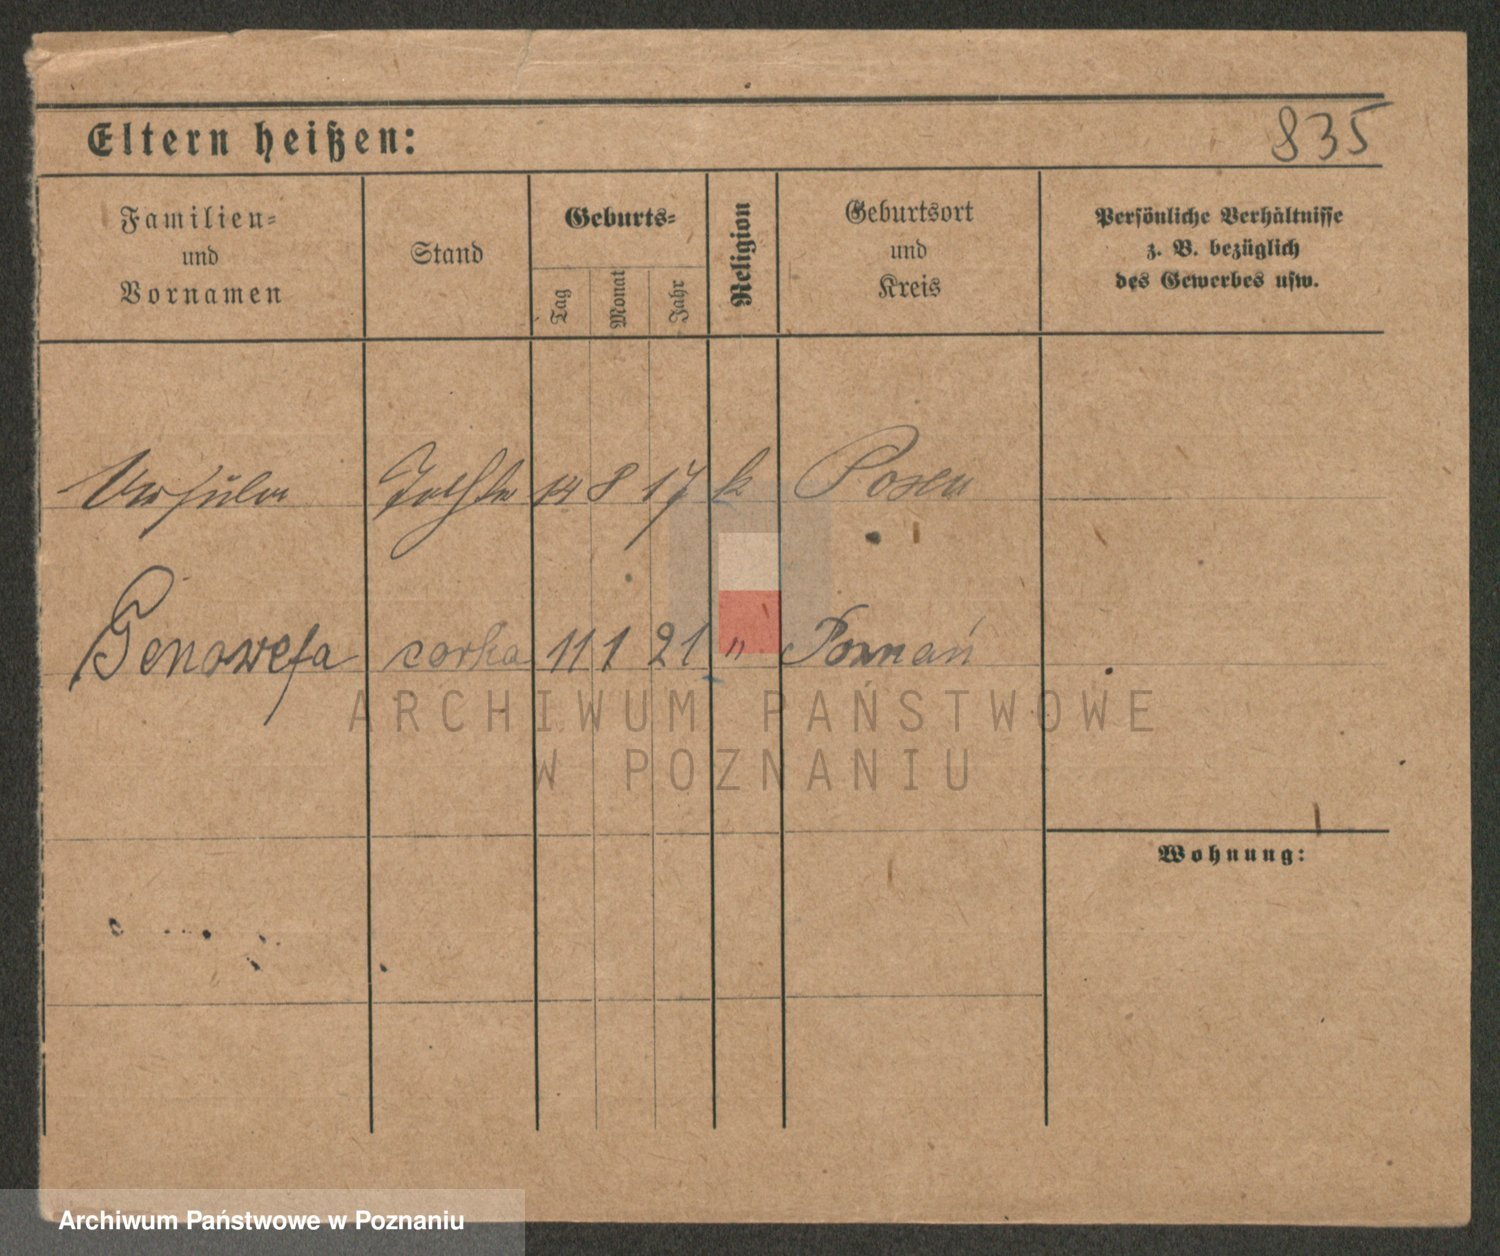 Eltern heißen:
835
Familien-
und
Vornamen
Stand
Geburts-
Tag
Monat
Jahr
Religion
Geburtsort
und
Kreis
Persönliche Verhältnisse
z. B. bezüglich
des Gewerbes usw.
Ursula Tochter 14 8 17 k Posen
Genowefa corka 11 1 21 " Poznań
ARCHIWUM PAŃSTWOWE
W POZNANIU
Wohnung:
Archiwum Państwowe w Poznaniu